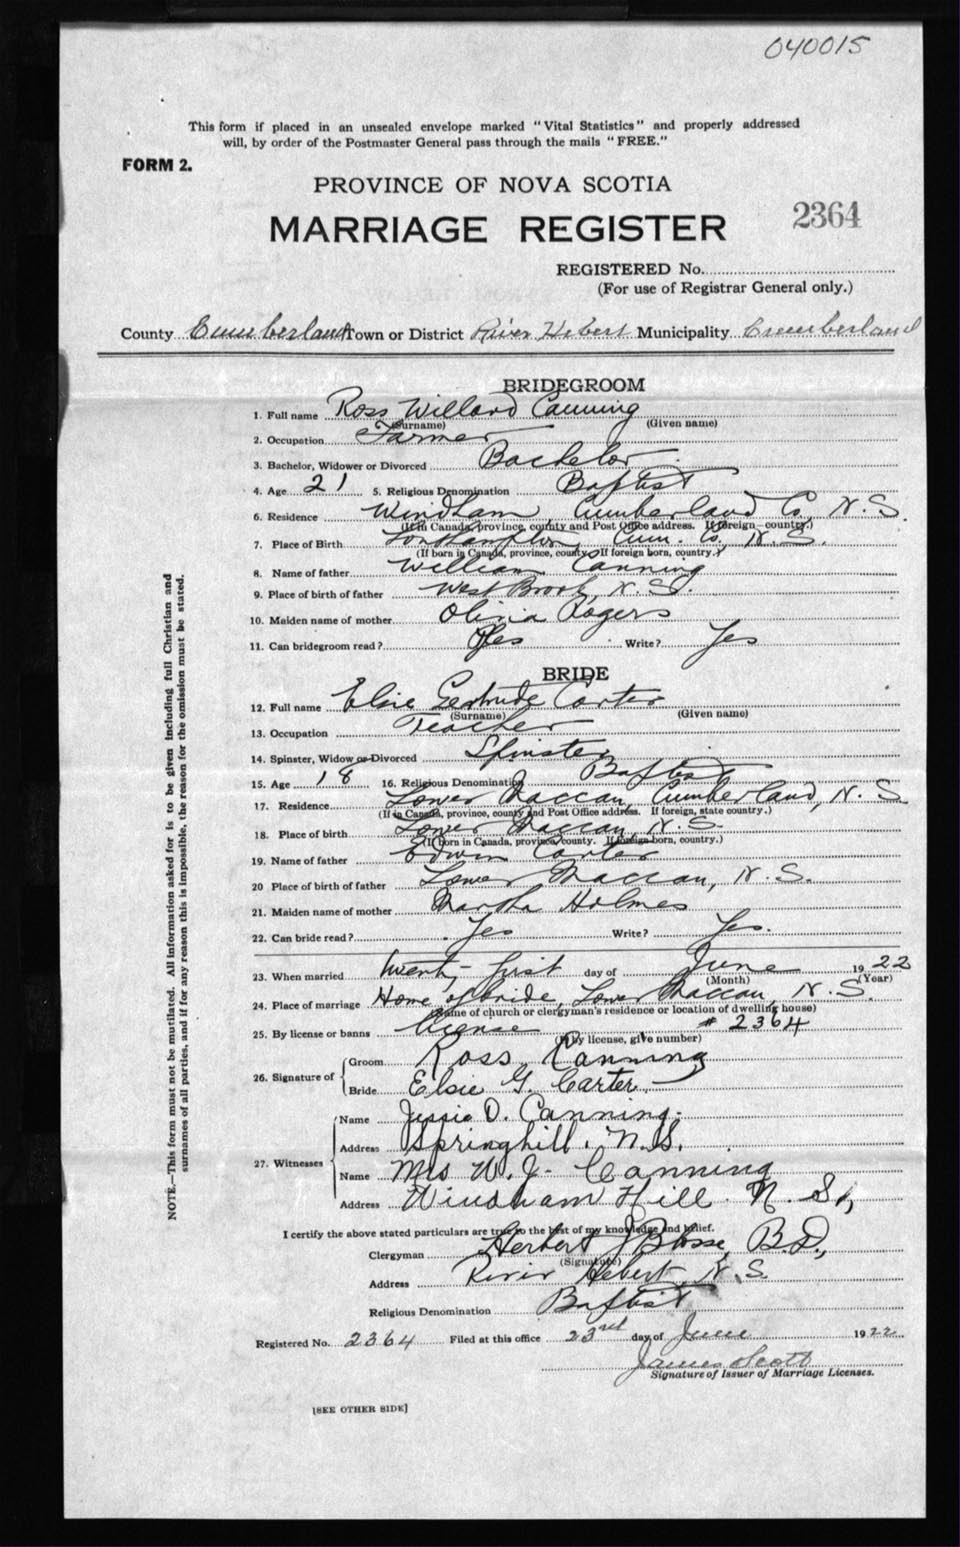 040015
This form if placed in an unsealed envelope marked "Vital Statistics" and properly addressed
will, by order of the Postmaster General pass through the mails "FREE."
FORM 2.
PROVINCE OF NOVA SCOTIA
MARRIAGE REGISTER
2364
REGISTERED No.
(For use of Registrar General only.)
County Cumberland Town or District River Hebert Municipality Cumberland
BRIDEGROOM
1. Full name Ross Willard Canning
(Surname) (Given name)
2. Occupation Farmer
3. Bachelor, Widower or Divorced Bachelor
4. Age 21 5. Religious Denomination Baptist
6. Residence Windham Cumberland Co, N.S.
(If in Canada, province, county and Post Office address. If foreign country.)
7. Place of Birth Southampton Cum. Co, N.S.
(If born in Canada, province, county. If foreign born, country.)
8. Name of father William Canning
9. Place of birth of father West Brook, N.S.
10. Maiden name of mother Olivia Rogers
11. Can bridegroom read? Yes Write? Yes
BRIDE
12. Full name Elsie Gertrude Carter
(Surname) (Given name)
13. Occupation Teacher
14. Spinster, Widow or Divorced Spinster
15. Age 18 16. Religious Denomination Baptist
17. Residence Lower Maccan, Cumberland, N.S.
(If in Canada, province, county and Post Office address. If foreign, state country.)
18. Place of birth Lower Maccan, N.S.
(If born in Canada, province/county. If foreign born, country.)
19. Name of father Edwin Carter
20 Place of birth of father Lower Maccan, N.S.
21. Maiden name of mother Martha Holmes
22. Can bride read? Yes Write? Yes.
23. When married twenty-first day of June 1922
(Month) (Year)
24. Place of marriage Home of bride, Lower Maccan, N.S.
(Name of church or clergyman's residence or location of dwelling house)
25. By license or banns license # 2364
(If by license, give number)
26. Signature of
Groom Ross Canning
Bride Elsie G. Carter
27. Witnesses
Name Jessie D. Canning
Address Springhill, N.S.
Name Mrs W. J. Canning
Address Windham Hill N.S.,
I certify the above stated particulars are true to the best of my knowledge and belief.
Clergyman Herbert J Blosse, B.D.,
(Signature)
Address River Hebert, N.S.
Religious Denomination Baptist
Registered No. 2364 Filed at this office 23rd day of June 1922
James Scott
Signature of Issuer of Marriage Licenses.
[SEE OTHER SIDE]
NOTE.—This form must not be mutilated. All information asked for is to be given including full Christian and
surnames of all parties, and if for any reason this is impossible, the reason for the omission must be stated.